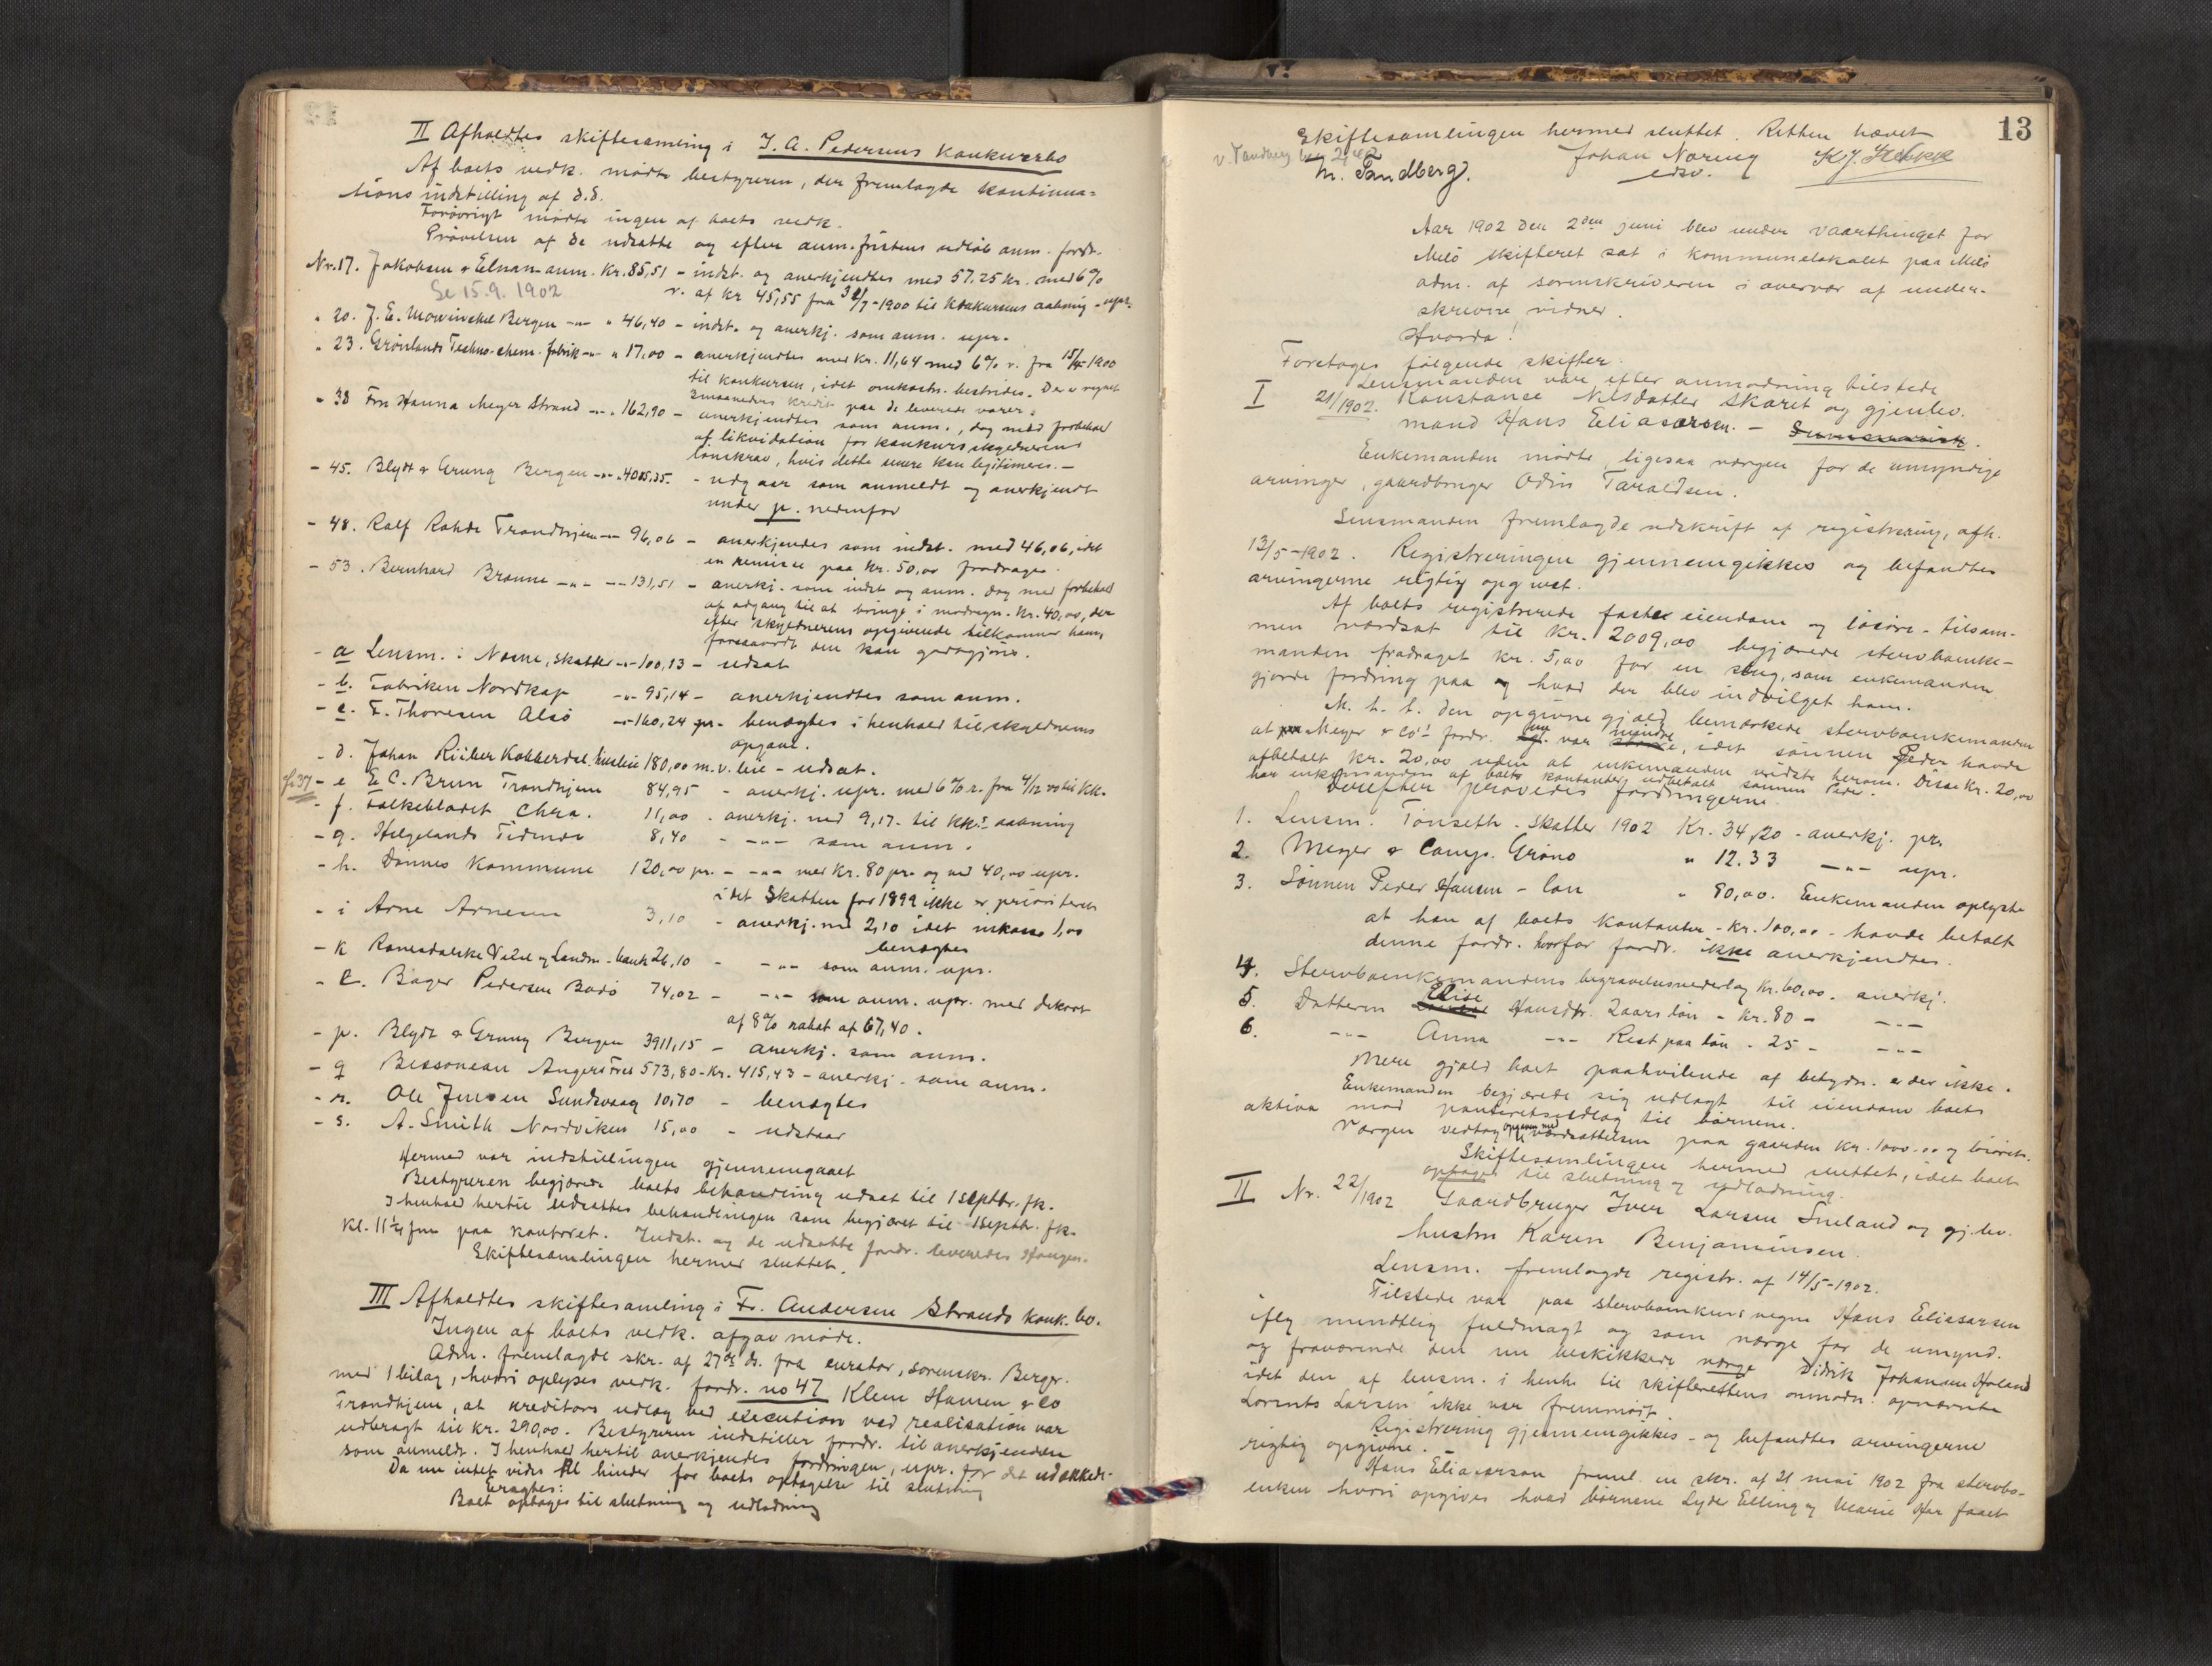 II Afholdtes skiftesamling i J. A. Pedersens Konkursbo
Af boets vedk. mødte bestyreren, der fremlagde kontinua=
tions indstilling af d.d.
Forøvrigt mødte ingen af boets vedk.
Prøvelsen af de udsatte og efter anm. fristens udløb anm. fordr.
Nr. 17. Jakobsen & Elnan anm. Kr. 85,51 - indst. og anerkjendtes med 57.25 kr. med 6%
Se 15.9.1902
r. af kr 45,55 fra 31/7-1900 til konkursens aabning - upr.
" 20. J. E. Mowinckel Bergen -"- " 46,40 - indst. og anerkj. som anm. upr.
" 23. Grønlands Techno-chem. fabrik -"- " 17,00 - anerkjendtes med Kr. 11,64 med 6% r. fra 15/4-1900
til konkursen, idet omkostn. bestrides. Der er regnet
3 maaneders kredit paa de leverede varer.
" 38 Fru Hanna Meyer Strand -"- " 162,90 - anerkjendtes som anm., dog med forbehold
af likvidation for konkursskyldnerens
lønskrav, hvis dette senere kan legitimeres. -
- 45. Blydt & Grung Bergen -"- " 4005,35. - udgaar som anmeldt og anerkjendt
under p. nedenfor
- 48. Ralf Rohde Trondhjem -"- 96,06 - anerkjendes som indst. med 46,06, idet
en remisse paa Kr. 50,00 fradrages.
- 53. Bernhard Brænne -"- -"- 131,51 - anerkj. som indst og anm. dog med forbehold
af adgang til at bringe i modregn. Kr. 40,00, der
efter skyldnerens opgivende tilkommer ham,
forsaavidt den kan godtgjøres.
- a Lensm. i Næsne, skatter -"- 100,13 - udsat
- b. Fabriken Nordkap -"- 95,14 - anerkjendtes som anm.
- c. F. Thoresen Alsø -"- 160,24 pr. - benægtes i henhold til skyldnerens
opgave.
- d. Johan Riiber Kobberdal. husleie 180,00 m. v. leie - udsat.
- e E C. Brun Trondhjem 84,95 - anerkj. upr. med 6% r. fra 4/12 00 til KK.
- f. Folkebladet Chra. 11,00 . anerkj. med 9,17 - til KK's aabning
- g. Helgelands Tidende 8,40 - -"- som anm.
- h. Dønnes Kommune 120,00 pr. - -"- med Kr. 80 pr. og med 40,00 upr.
idet Skatten for 1899 ikke er prioriteret
- i Arne Arnesen 3,10 - anerkj. med 2,10 idet inkasso 1,00
benægtes
- k Ranesdalske Vexel og Landm.-bank 26,10 - -"- som anm. upr.
- l. Bager Pedersen Bodø 74,02 - -"- som anm. upr. med dekort
af 8% rabat af 67,40.
- p. Blydt & Grung Bergen 3911,15 - anerkj. som anm.
- q Bessoneau Angers Frcs 573,80 - Kr. 415,43 - anerkj. som anm.
- r. Ole Jensen Sundsvaag 10,70 - benægtes
- s. A. Smith Nordviken 15,00 - udstaar
Hermed var indstillingen gjennemgaaet
Bestyreren begjærede boets behandling udsat til 1 septbr. fk.
I henhold hertil udsattes behandlingen som begjæret til 1 septbr. fk.
Kl. 11 1/4 fm paa kontoret. Indst. og de udsatte fordr. leveredes
Skiftesamlingen hermed sluttet.
III Afholdtes skiftesamling i Fr. Andersen Strands konk.bo.
Ingen af boets vedk. afgav møde.
Adm. fremlagde skr. af 27 ds. fra curator, sorenskr. Berger.
med 1 bilag, hvori oplyses vedk. fordr. no 47 Klem Hansen & Co
Trondhjem, at kreditors udlæg ved execution ved realisation var
udbragt til kr. 290,00. Bestyreren indstiller fordr. til anerkjendelse
som anmeldt. I henhold hertil anerkjendes fordringen, upr. for det udækkede.
Da nu intet vides til hinder for boets optagelse til slutning
Eragtes:
Boet optages til slutning og udlodning
13
Skiftesamlingen hermed sluttet. Retten hævet
M. Tandberg. Johan Næring
edsv.
Aar 1902 den 2den juni blev under vaarthinget for
Melø skifteret sat i kommunelokalet paa Melø
adm. af sorenskriveren i overvær af under-
skrevne vidner.
Hvorda!
Foretoges følgende skifter.
Lensmanden var efter anmodning tilstede
I 21/1902. Konstanse Nilsdatter Skaret og gjenlev.
mand Hans Eliasarsen. - Summarisk.
Enkemanden mødte, ligesaa værgen for de umyndige
arvinger, gaardbruger Odin Taraldsen.
Lensmanden fremlagde udskrift af registrering, afh.
13/5-1902. Registreringen gjennemgikkes og befandtes
arvingerne rigtig opgivet.
Af boets registrerede faste eiendom og løsøre - tilsam-
men værdsat til Kr. 2009,00 begjærede stervboenke-
manden fradraget kr. 5,00 for en seng, som enkemanden
gjorde fordring paa og hvad der blev indvilget ham.
M. h. t. den opgivne gjæld bemærkede stervboenkemanden
at Meyer & Co's fordr. var mindre, idet sønnen Peder havde
afbetalt kr. 20,00 uden at enkemanden vidste herom. Disse Kr. 20,00
har enkemanden af boets kontanter udbetalt sønnen Peder.
Derefter prøvedes fordringerne.
1. Lensm. Tønseth - Skatter 1902 Kr. 34,20 - anerkj. pr.
2. Meyer & Comp. Grønø " 12.33 -"- upr.
3. Sønnen Peder Hansen - løn " 80,00. Enkemanden oplyste
at han af boets kontanter - Kr. 100,00 - havde betalt
denne fordr. hvorfor fordr. ikke anerkjendtes.
4. Stervboenkemandens begravelsesvederlag Kr. 60,00. anerkj.
5. Datteren Elise Hansdtr. 2 aars løn - Kr. 80 - -"-
6. -"- Anna -"- Rest paa løn - 25 - -"-
Mere gjæld boet paahvilende af betydn. er der ikke.
Enkemanden begjærede sig udlagt til eiendom boets
aktiva mod panteretsudlæg til børnene.
Værgen vedtog opgaven med værdsættelsen paa gaarden Kr. 1000.00 og
Skiftesamlingen hermed sluttet, idet boet
optages til slutning og udlodning.
II Nr. 22/1902 Gaardbruger Iver Larsen Sneland og gj.lev.
hustru Karen Benjaminsen.
Lensm. fremlagde registr. af 14/5-1902.
Tilstede var paa stervboenkens vegne Hans Eliasarsen
iflg mundtlig fuldmagt og som værge for de umynd.
og fraværende den nu beskikkede værge Didrik Johansen
idet den af lensm. i henh. til skifterettens anmodn. opnævnte
Lorents Larsen ikke var fremmødt.
Registrering gjennemgikkes - og befandtes arvingerne
rigtig opgivne.
Hans Eliasarsen freml. en skr. af 21 mai 1902 fra stervbo-
enken hvori opgives hvad børnene Lyder Elling og Marie har faaet